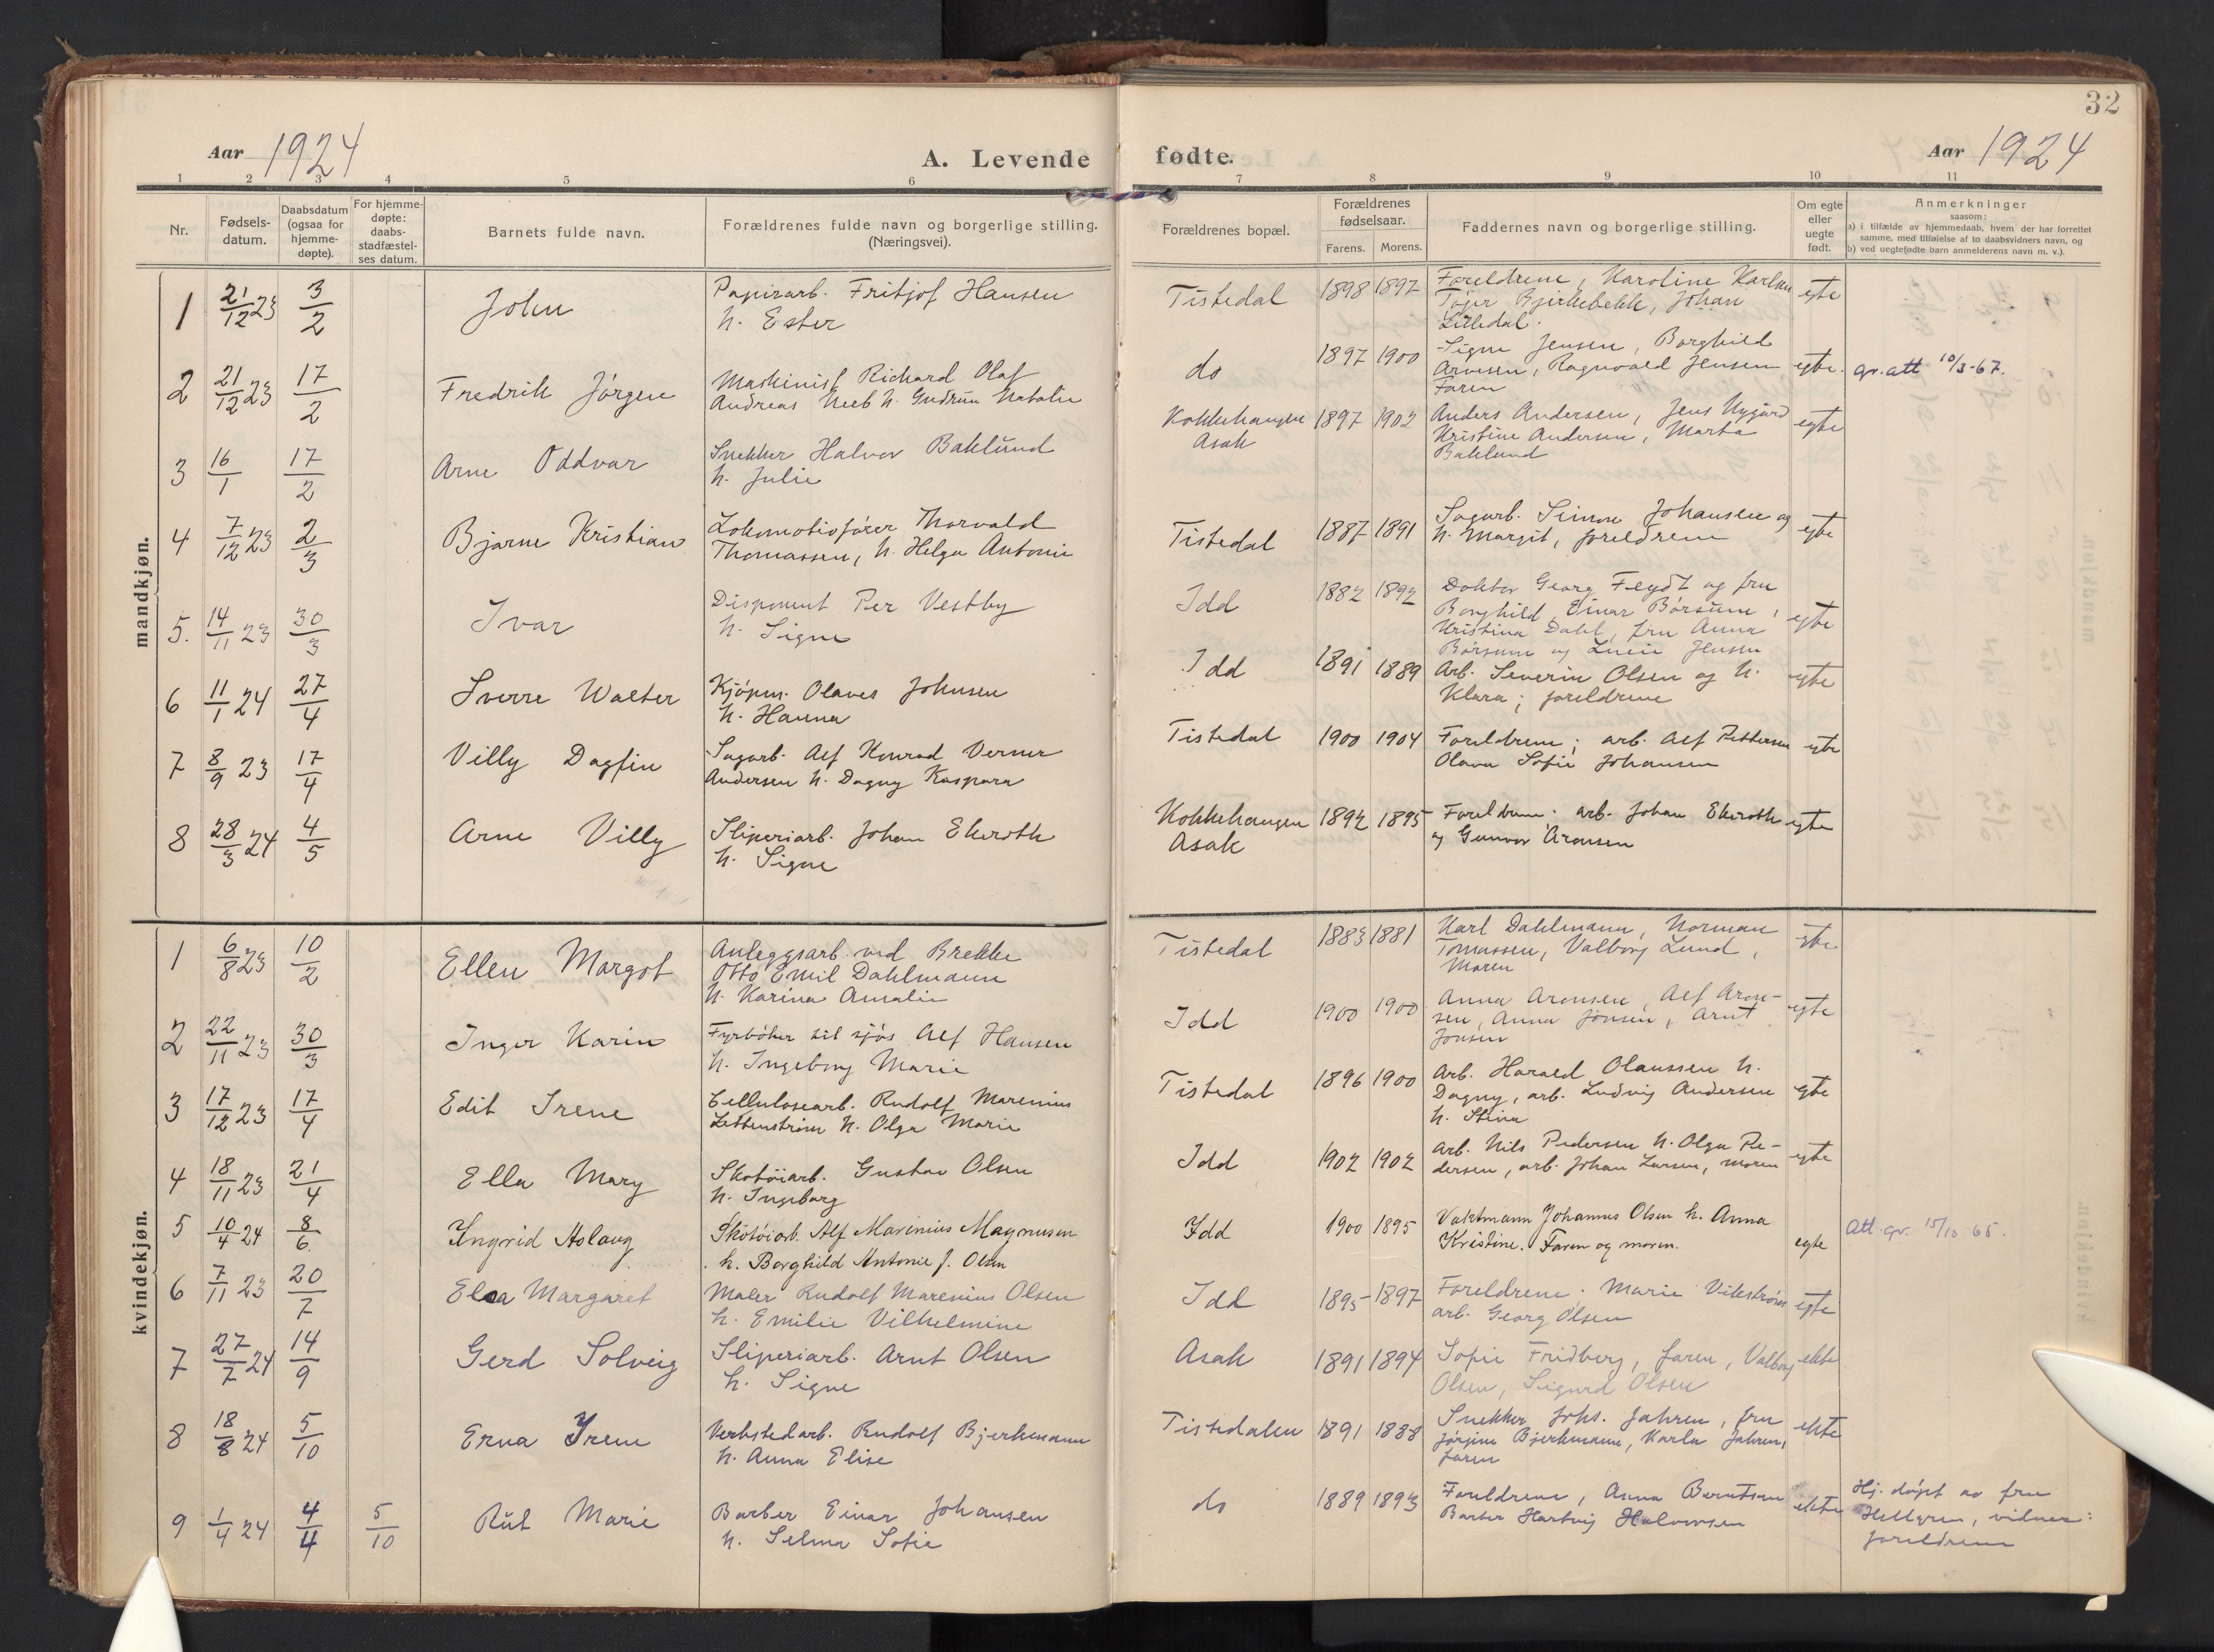 32
Aar 1924
A. Levende fødte.
Aar 1924
1 2 3 4 5 6 7 8 9 10 11
Nr.
Fødsels-
datum.
Daabsdatum
(ogsaa for
hjemme-
døpte).
For hjemme-
døpte:
daabs-
stadfæstel-
ses datum.
Barnets fulde navn.
Forældrenes fulde navn og borgerlige stilling.
(Næringsvei).
Forældrenes bopæl.
Forældrenes
fødselsaar.
Farens. Morens.
Faddernes navn og borgerlige stilling.
Om egte
eller
uegte
født.
Anmerkninger
saasom:
a) i tilfælde av hjemmedaab, hvem der har forrettet
samme, med tilføielse af to daabsvidners navn, og
b) ved uegtefødte barn anmelderens navn m. v.).
mandkjøn.
1 21/12 23 3/2 John
Papirarb. Fritjof Hansen
h. Ester
Tistedal 1898 1897
Foreldrene, Karoline Karlsen
Bjerkebekk, Johan
Lilledal.
egte
2 21/12 23 17/2 Fredrik Jörgen
Maskinist Richard Olaf
Andreas Neeb h. Gudrun Natalie
do 1897 1900
Signe Jensen, Borghild
Arvesen, Ragnvald Jensen
Faren
egte. gr. att 10/3-67.
3 16/1 17/2 Arne Oddvar
Snekker Halvor Baklund
h. Julie
Kokkehaugen
Asak
1897 1902
Anders Andersen, Jens Nygård
Kristine Andersen, Marta
Baklund
egte
4 7/12 23 2/3 Bjarne Kristian
Lokomotivförer Thorvald
Thomassen, h. Helga Antonie
Tistedal 1887 1891
Sagarb. Simon Johansen og
h. Margit, foreldrene
egte
5. 14/11 23 30/3 Ivar
Disponent Per Vestby
h. Signe
Idd 1882 1892
Doktor Georg Flygt og fru
Borghild, Einar Börsum,
Kristina Dahl, fru Anna
Börsum og Lucie Jensen
egte
6 11/1 24 27/4 Sverre Walter
Kjöpm. Olaves Johnsen
h. Hanna
Idd 1891 1889
Arb. Severin Olsen og h.
Klara; foreldrene
egte
7 8/9 23 17/4 Villy Dagfin
Sagarb. Alf Konrad Verner
Andersen h. Dagny Kaspara
Tistedal 1900 1904
Foreldrene; arb. Alf Pettersen
Olava Sofie Johansen
egte
8 28/3 24 4/5 Arne Villy
Sliperiarb. Johan Ekeroth
h. Signe
Kokkehaugen
Asak
1892 1895
Foreldrene. arb. Johan Ekeroth
og Gunvor Aronsen
egte
kvindekjøn.
1 6/8 23 10/2 Ellen Margot
Anleggsarb. ved Brekke
Otto Emil Dahlmann
h. Karina Amalie
Tistedal 1883 1881
Karl Dahlmann, Norman
Tomassen, Valborg Lund,
Moren
egte
2 22/11 23 30/3 Inger Karin
Fyrböter til sjös Alf Hansen
h. Ingeborg Marie
Idd 1900 1900
Anna Aronsen, Alf Aron-
sen, Anna Jonsen, Arnt
Jonsen
egte
3 17/12 23 17/4 Edit Irene
Cellulosearb. Rudolf Marenius
Zettenström h. Olga Marie
Tistedal 1896 1900
Arb. Harald Olaussen h.
Dagny, arb. Ludvig Andersen
h. Stina
egte
4 18/11 23 21/4 Ella Mary
Skotöiarb. Gustav Olsen
h. Ingeborg
Idd 1902 1902
Arb. Nils Pedersen h. Olga Pe-
dersen, arb. Johan Larsen, moren
egte
5 10/4 24 8/6. Yngvid Aslaug
Skotöiarb. Alf Marinius Magnusen
h. Borghild Antonie f. Olsen
Idd 1900 1895
Vaktmann Johannes Olsen h. Anna
Kristine. Faren og moren.
egte Att. gr. 15/10 65.
6 7/11 23 20/7 Elsa Margaret
Maler Rudolf Marenius Olsen
h. Emilie Vilhelmine
Idd 1895 1897
Foreldrene. Marie Vikström
arb. Georg Olsen
egte
7 27/7 24 14/9 Gerd Solveig
Sliperiarb. Arnt Olsen
h. Signe
Asak 1891 1894
Sofie Fridberg, faren, Valborg
Olsen, Sigurd Olsen
ekte
8 18/8 24 5/10 Erna Irene
Verkstedarb. Rudolf Bjerkmann
h. Anna Elise
Tistedalen 1891 1888
Snekker Johs. Jahren, fru
Jörgine Bjerkmann, Karla Jahren,
faren
ekte
9 1/4 24 4/4 5/10 Rut Marie
Barber Einar Johansen
h. Selma Sofie
do 1889 1893
Foreldrene, Anna Berntsen
Barber Hartvig Halvorsen
ekte
Hj. döpt av fru
Hellgren, vidner:
foreldrene